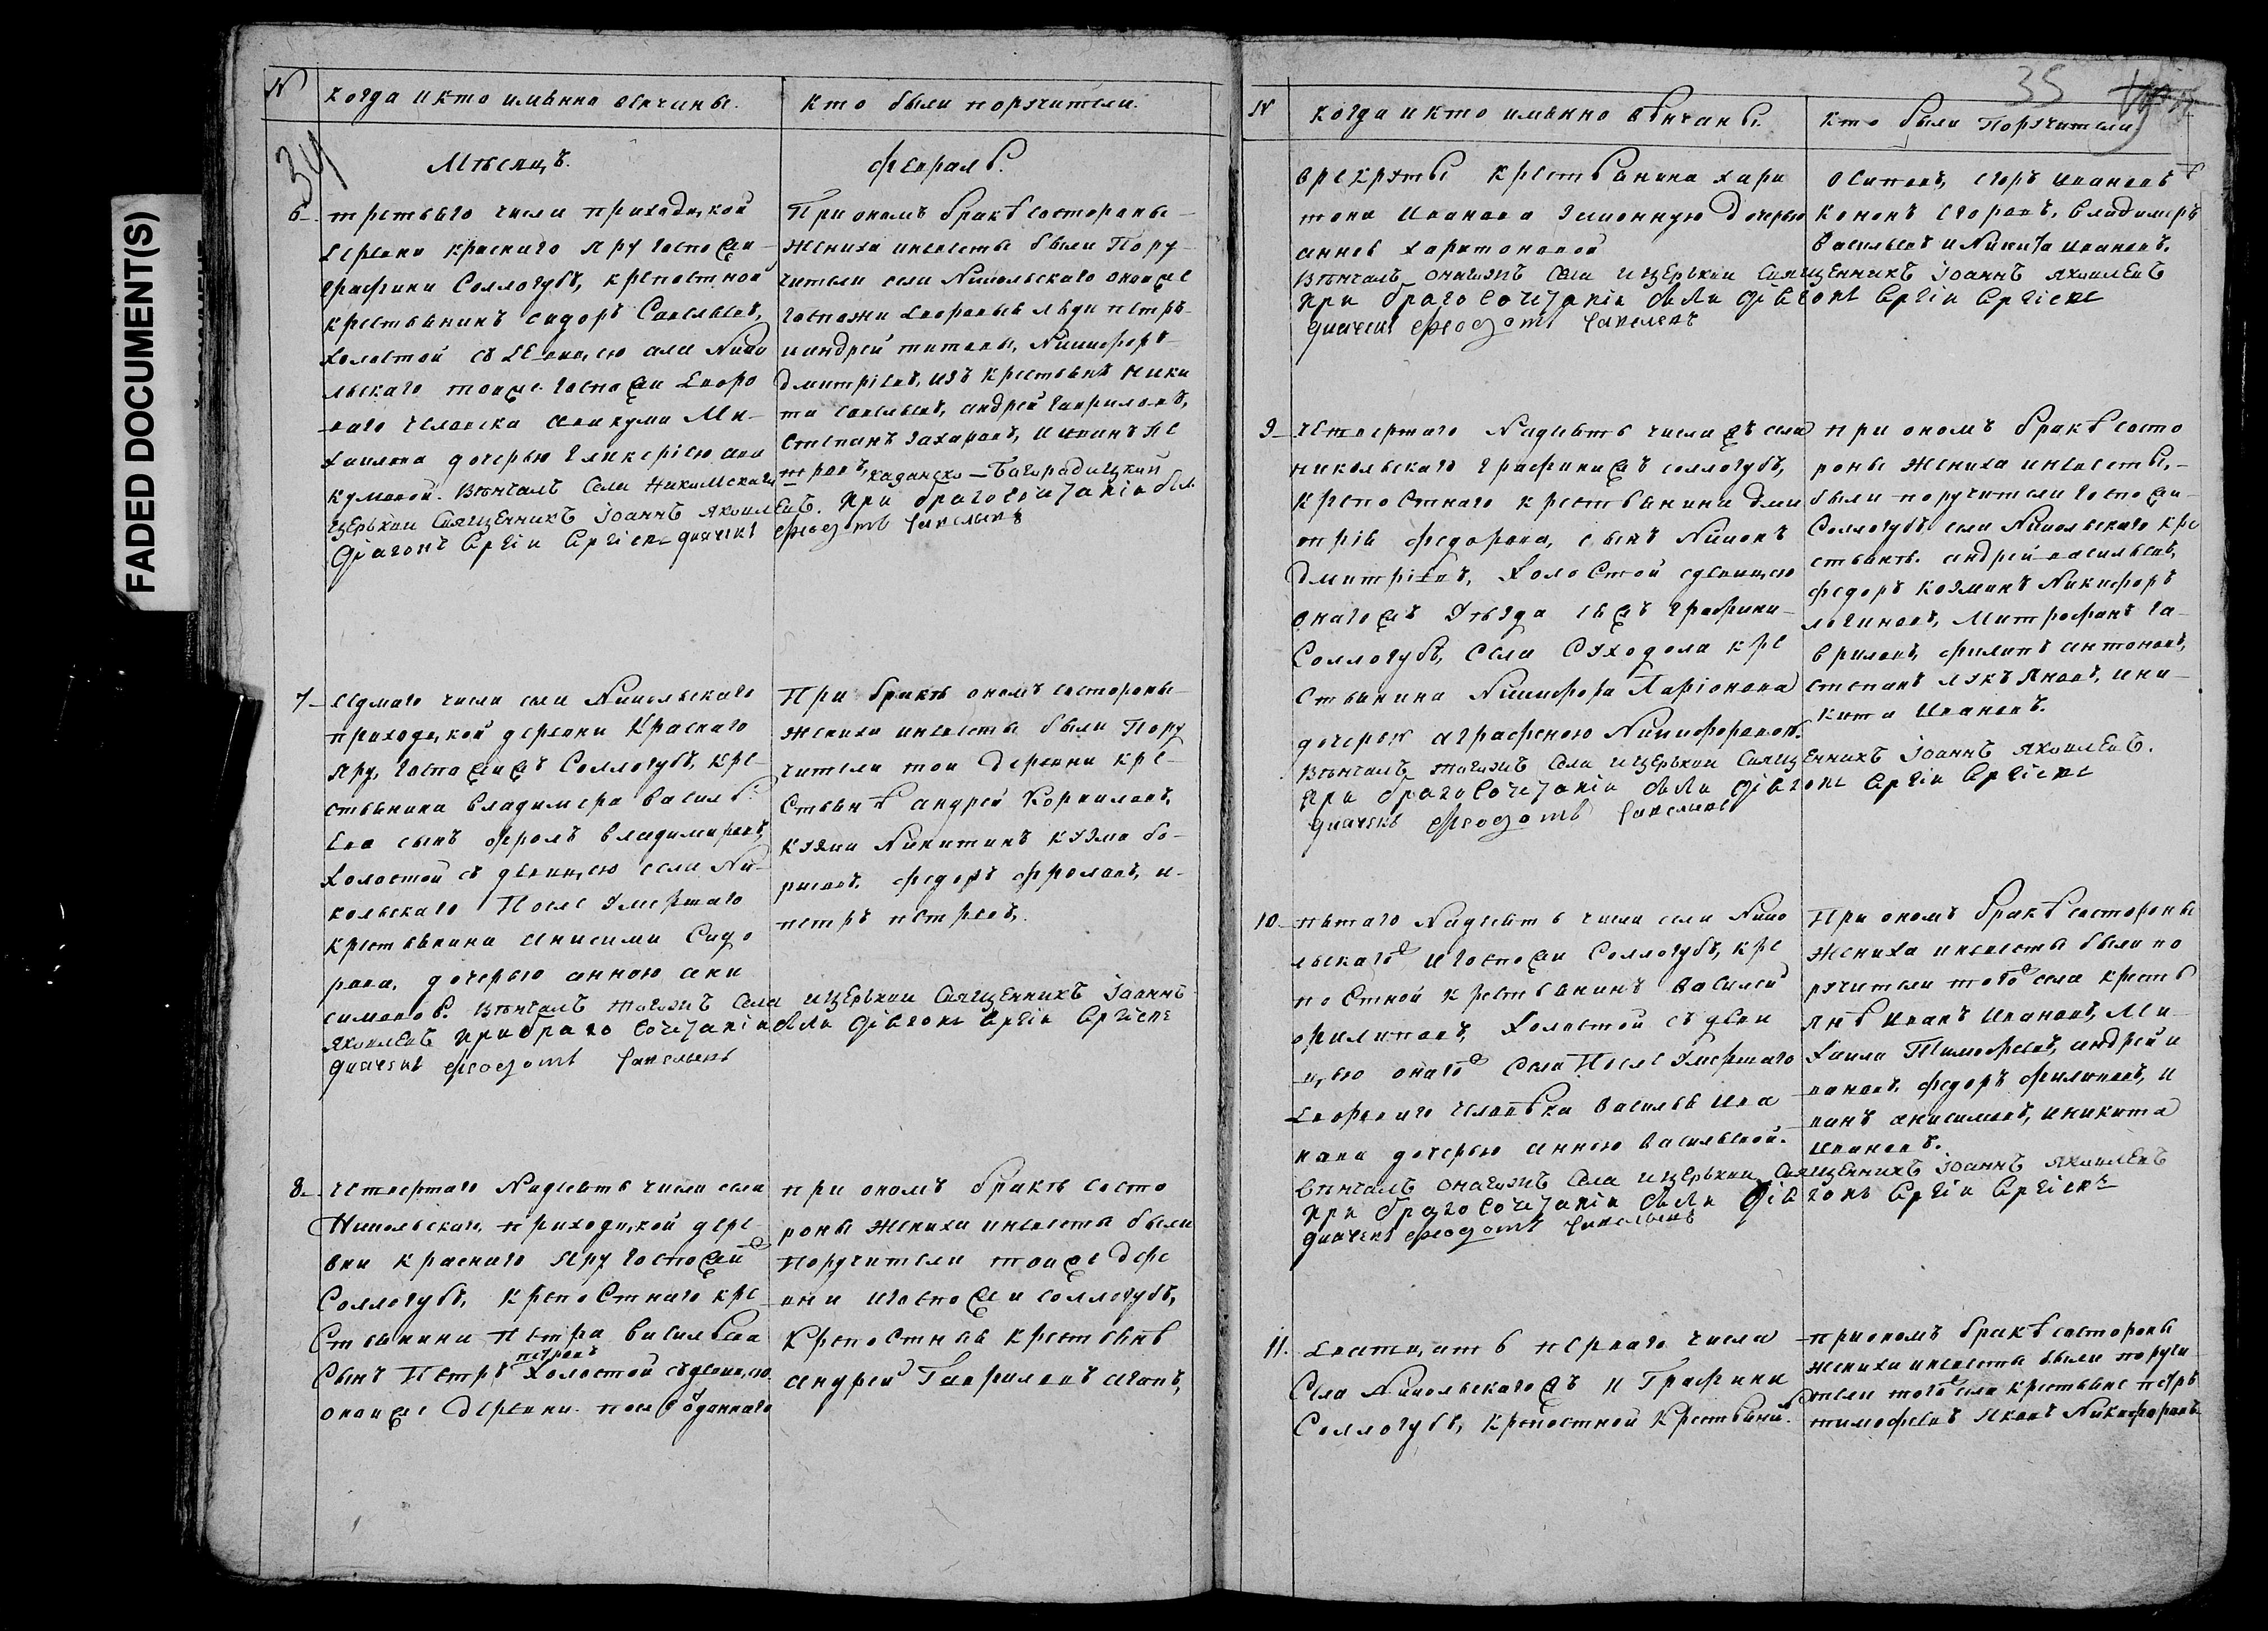 FADED DOCUMENT(S)
№
когда и кто имѣнно венчаны.
кто были поручители.
34
Мѣсецъ.
февраль.
6
третьяго числа приходцкой
деревни краснаго яру госпожи
графини Соллогубъ, крепостной
крестьянинъ сидоръ Савельевъ,
холостой съ девицею села Нико
льскаго тоиже госпожи дворо
ваго человека авакума Ми
хаилова дочерью гликерiею ава
кумовой. Вѣнчалъ Села Никольскаго
церькви Священникъ Iоаннъ Яковлевъ. При бракосочетанiи были
Дiаконъ Сергiи Сергiевъ дьячекъ феодотъ Савельевъ
При ономъ бракѣ состороны
жениха иневесты были Пору
чители села Никольскаго оноеже
госпожи дворовыя люди петръ
иандрей титовы, Никифоръ
дмитрiевъ, изъ крестьянъ ники
та савельевъ, андрей гавриловъ,
Степанъ Захаровъ, и иванъ пе
тровъ, казанско-Багородицкий
7
седмаго числа села Никольскаго
приходцкой деревни Краснаго
яру, госпожижъ Соллогубъ, кре
стьянина владимера василь
ева сынъ фролъ владимировъ,
холостой съ девицею села Ни
кольскаго После умершаго
крестьянина анисима Сидо
рова, дочерью анною ани
симовой. Вѣнчалъ тогожъ Села ицерькви Священникъ Iоаннъ
Яковлевъ При бракосочетанiи были дiаконъ Сергiи Сергiевъ
дьячекъ феодотъ Савельевъ
При бракѣ ономъ состороны
жениха иневесты были Пору
чители тои деревни кре
стьянѣ андрей Корниловъ,
кузма Никитинъ кузма бо
рисовъ. федоръ фроловъ, и
петръ петровъ,
8
четвертаго Надцеть числа села
Никольскаго, приходцкой дере
вни краснаго яру госпожи
Соллогубъ, крепостнаго кре
стьянина петра васильева
петровъ
Сынъ Петръ холостой съдевицею
оноиже деревни после отданнаго
при ономъ бракѣ состо
роны жениха иневесты были
поручители тоиже дере
вни игоспожи соллогубъ,
крепостныя крестьянѣ
андрей Гавриловъ агапъ,
35
№
когда и кто имѣнно венчаны.
кто были Поручители
врекруты крестьянина хари
тона иванова законную дочерью
анною харитоновой
Вѣнчалъ онагожъ Села ицерькви Священникъ Iоаннъ Яковлевъ
При бракосочетанiи были дiаконъ Сергiи Сергiевъ
дьячекъ феодотъ Савельевъ
осиповъ, егоръ ивановъ
кононъ егоровъ, владимеръ
васильевъ и Никита ивановъ.
9
четвертаго Надцеть числа жъ села
никольскаго графинижъ соллогубъ,
крепостнаго крестьянина дми
трiя федорова, сынъ Никонъ
дмитрiевъ, холостой сдевицею
онагожъ уѣзда ияжъ графини
Соллогубъ, села Суходола кре
стьянина Никифора Ларiонова
дочерью аграфеною Никифоровой.
Вѣнчалъ тогожъ Села ицерькви Священникъ Iоаннъ Яковлевъ.
При бракосочетанiи были дiаконъ Сергiи Сергiевъ
дьячекъ феодотъ Савельевъ
при ономъ бракѣ состо
роны жениха иневесты,
были поручители госпожи
Соллогубъ села Никольскаго кре
стьянѣ. андрей васильевъ,
федоръ козминъ Никифоръ
логиновъ, Митрофанъ га
вриловъ, филипъ антоновъ,
степанъ лукъяновъ, ини
кита ивановъ.
10
пятаго Надцеть числа села Нико
льскаго игоспожи Соллогубъ, кре
постной крестьянинъ василей
филиповъ, холостой съ деви
цею онаго села После умершаго
двороваго человека василья ива
нова дочерью анною васильевой.
Вѣнчалъ онагожъ Села ицерькви Священникъ Iоаннъ Яковлевъ
При бракосочетанiи были дiаконъ Сергiи Сергiевъ
дьячекъ феодотъ Савельевъ
При ономъ бракѣ состороны
жениха иневесты были по
ручители того села кресть
янѣ иванъ ивановъ, Ми
хаила Тимофеевъ, андрей и
вановъ. федоръ филиповъ, и
ванъ анисимовъ, иникита
ивановъ.
11.
дватцать перваго числа
Села Никольскагожъ и Графини
Соллогубъ, крепостной крестьянинъ
приономъ бракѣ состороны
жениха иневесты были поручи
тели того села крестьяне петръ
тимофеевъ Яковъ Никифоровъ